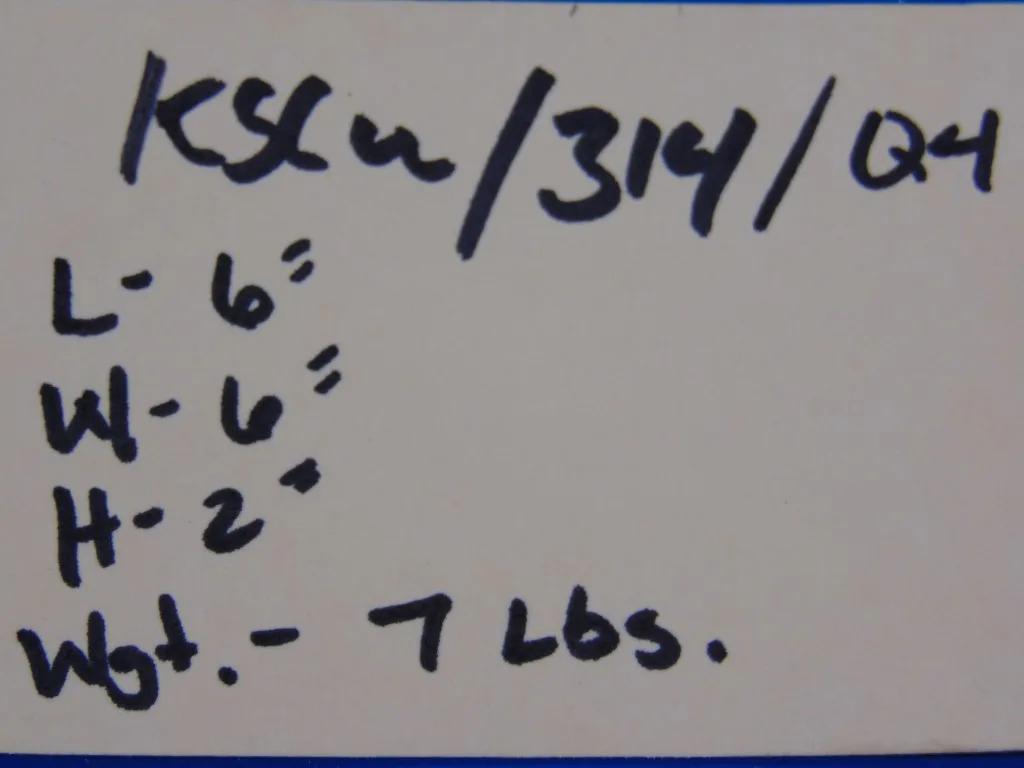 /314/Q4
L- 6"
W- 6"
H- 2"
Wgt.- 7 Lbs.